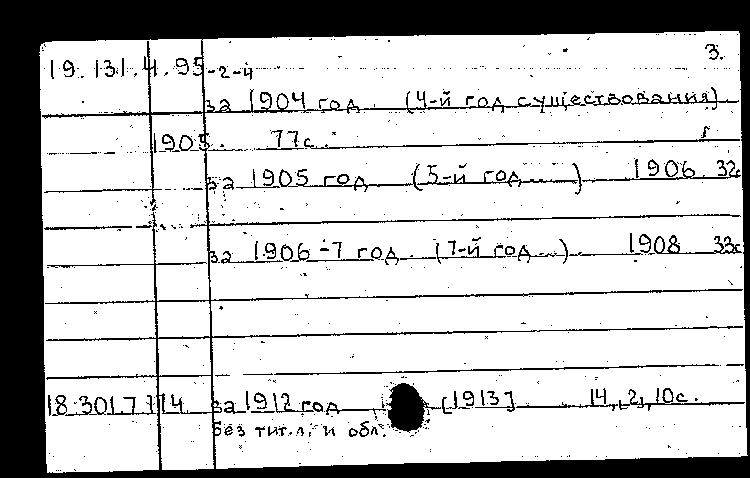 3.
19.131.4.95-2-4
за 1904 год (4-й год существования)
1905. 77с.
за 1905 год (5-й год....) 1906. 32с
за 1906-7 год. (7-й год...) 1908 33с
18.301.7.114 за 1912 год [1913] 14, [2], 10с.
без тит.л. и обл.